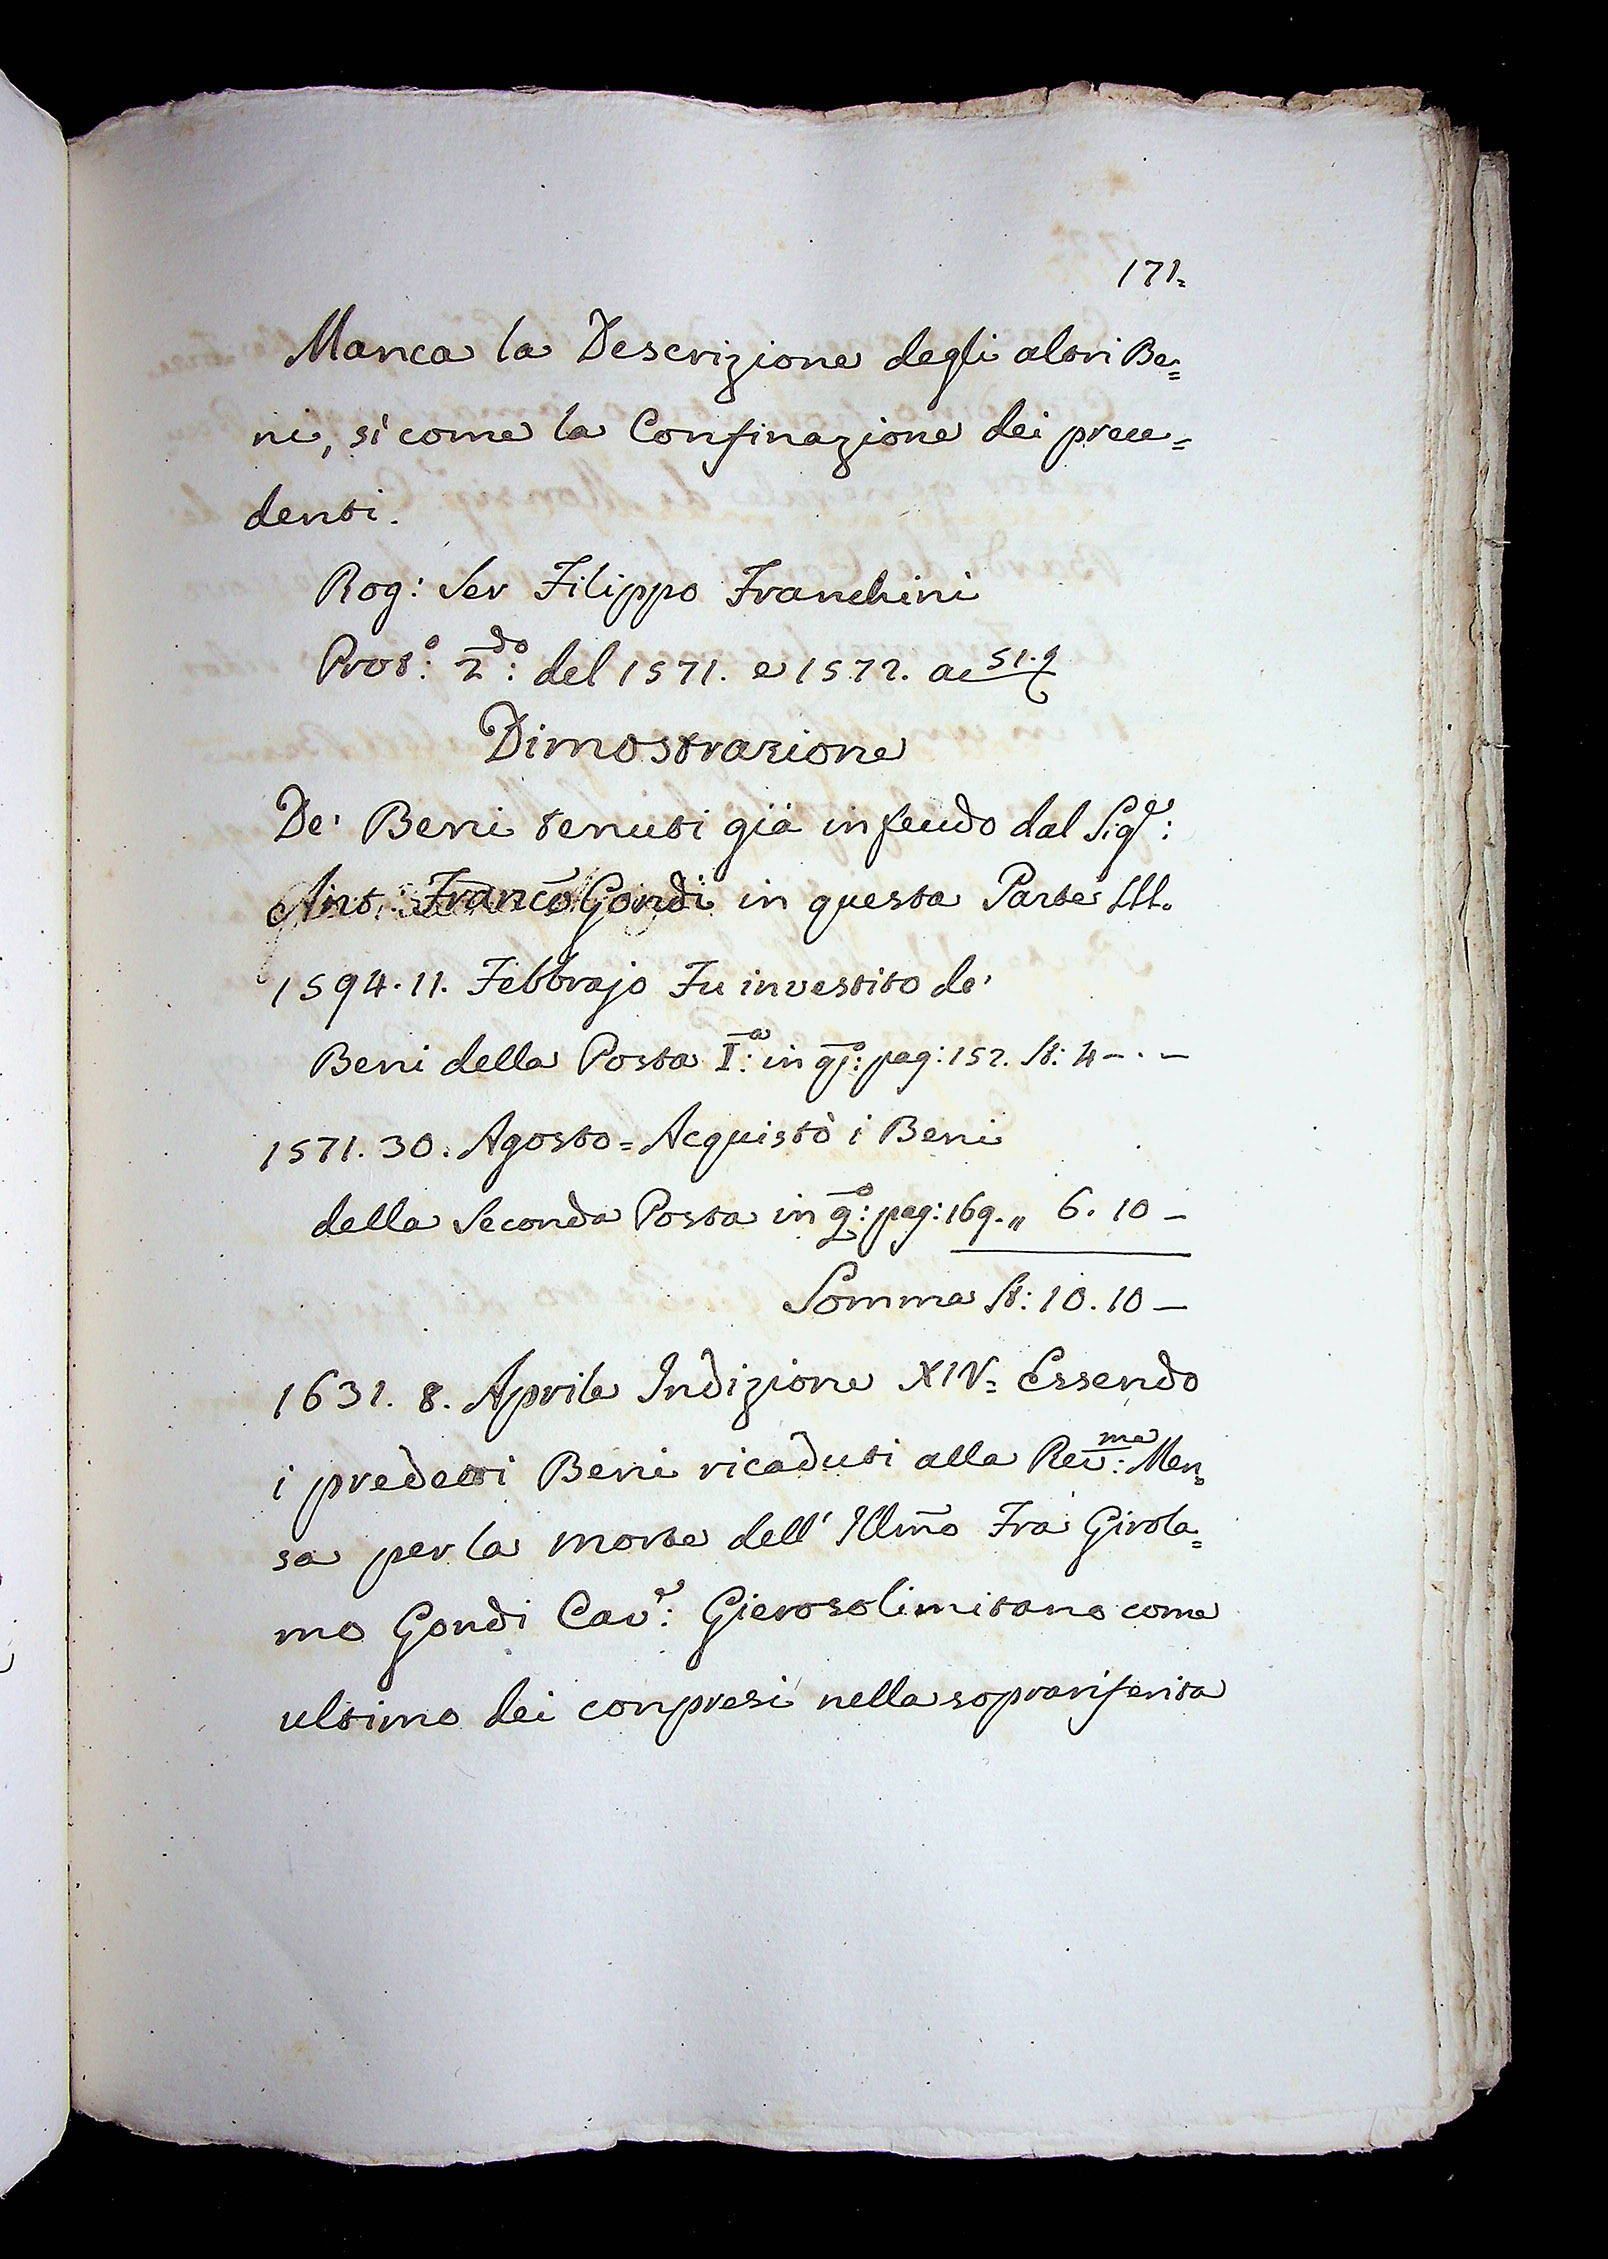 171.
Manca la Descrizione degli altri Be=
ni, si come la Confinazione dei prece=
denti.
Rog: Ser Filippo Franchini
Prot.º: 2.do: del 1571. e 1572. a 51.9
Dimostrazione
De' Beni tenuti già in feudo dal Sig.e:
Ant: Franco Gondi in questa Parte III.
1594. 11. Febbrajo Fu investito de'
Beni della Posta I.a: in q.o: pag: 152. St: 4 – . –
1571. 30. Agosto = Acquistò i Beni
della Seconda Posta in q.o: pag: 169. „ 6. 10 –
Somma St: 10. 10 –
1631. 8. Aprile Indizione XIV= Essendo
i predetti Beni ricaduti alla Rev.ma: Men=
sa per la morte dell' Illmo Fra Girola=
mo Gondi Cav.e: Gierosolimitano come
ultimo dei conpresi nella soprariferita